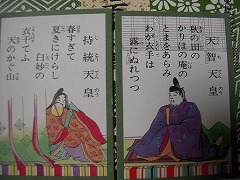 天智天皇
秋の田の
かりほの庵の
とまをあらみ
わが衣手は
露にぬれつつ
持統天皇
春すぎて
夏きにけらし
白妙の
衣干てふ
天のかぐ山